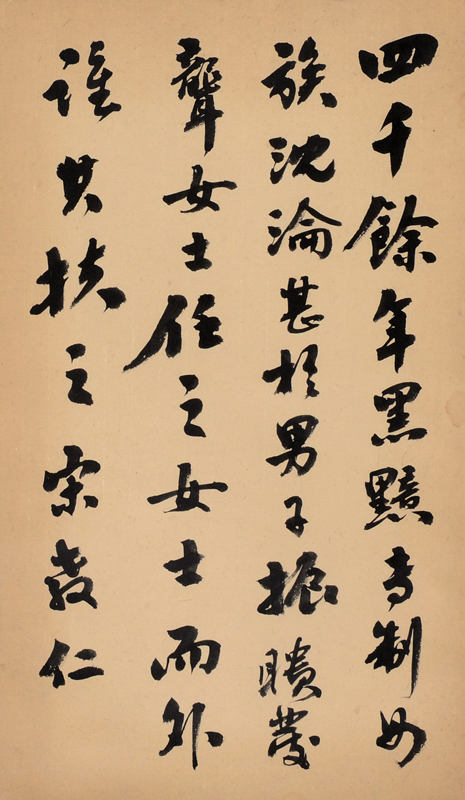 四千餘年黑黯专制女
族沈淪甚於男子振瞶發
聾女士任之女士而外
誰其扶之宋教仁